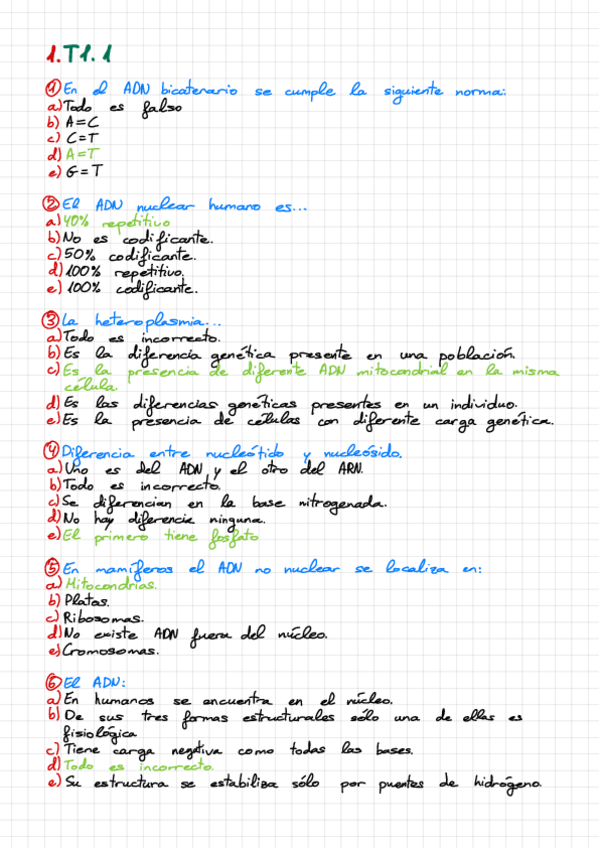 1.T1.1
① En el ADN bicatenario se cumple la siguiente norma:
a) Todo es falso
b) A=C
c) C=T
d) A=T
e) G=T
② El ADN nuclear humano es...
a) 40% repetitivo
b) No es codificante.
c) 50% codificante.
d) 100% repetitivo.
e) 100% codificante.
③ La heteroplasmia...
a) Todo es incorrecto.
b) Es la diferencia genética presente en una población.
c) Es la presencia de diferente ADN mitocondrial en la misma
célula.
d) Es las diferencias genéticas presentes en un individuo.
e) Es la presencia de células con diferente carga genética.
④ Diferencia entre nucleótido y nucleósido.
a) Uno es del ADN y el otro del ARN.
b) Todo es incorrecto.
c) Se diferencian en la base nitrogenada.
d) No hay diferencia ninguna.
e) El primero tiene fosfato
⑤ En mamíferos el ADN no nuclear se localiza en:
a) Mitocondrias.
b) Platos.
c) Ribosomas.
d) No existe ADN fuera del núcleo.
e) Cromosomas.
⑥ El ADN:
a) En humanos se encuentra en el núcleo.
b) De sus tres formas estructurales sólo una de ellas es
fisiológica
c) Tiene carga negativa como todas las bases.
d) Todo es incorrecto.
e) Su estructura se estabiliza sólo por puentes de hidrógeno.